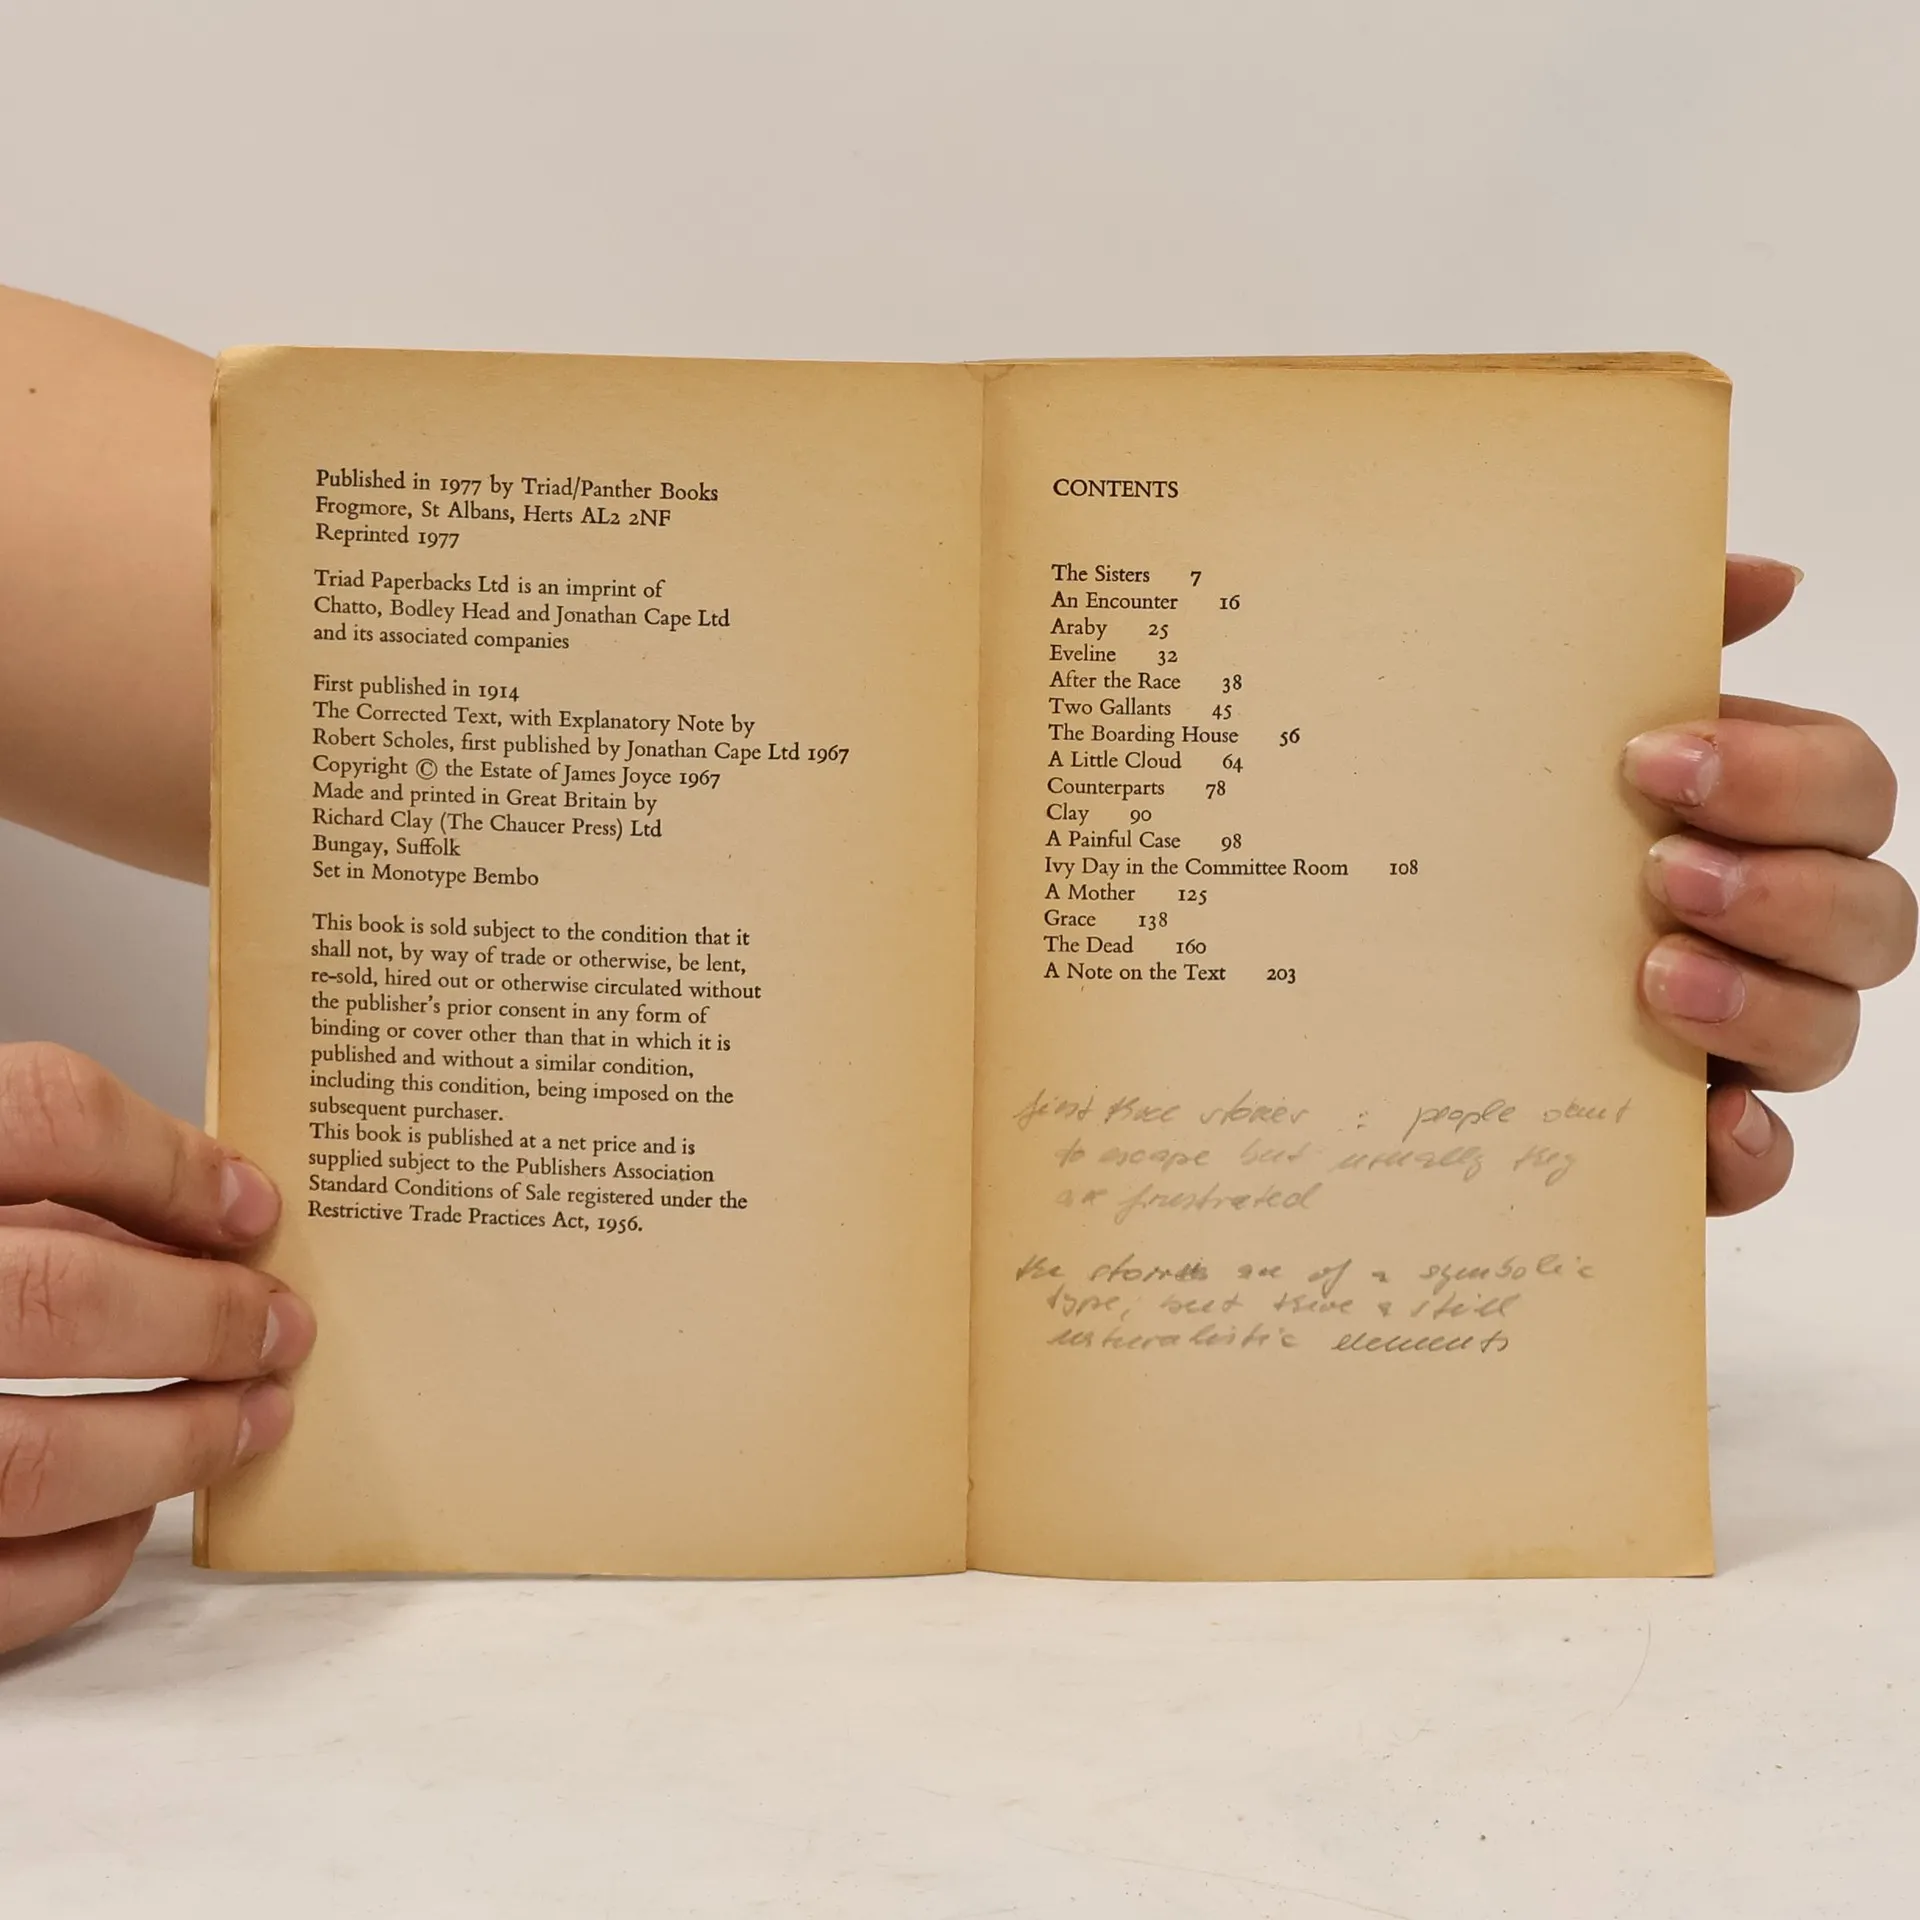 Published in 1977 by Triad/Panther Books
Frogmore, St Albans, Herts AL2 2NF
Reprinted 1977
Triad Paperbacks Ltd is an imprint of
Chatto, Bodley Head and Jonathan Cape Ltd
and its associated companies
First published in 1914
The Corrected Text, with Explanatory Note by
Robert Scholes, first published by Jonathan Cape Ltd 1967
Copyright © the Estate of James Joyce 1967
Made and printed in Great Britain by
Richard Clay (The Chaucer Press) Ltd
Bungay, Suffolk
Set in Monotype Bembo
This book is sold subject to the condition that it
shall not, by way of trade or otherwise, be lent,
re-sold, hired out or otherwise circulated without
the publisher's prior consent in any form of
binding or cover other than that in which it is
published and without a similar condition,
including this condition, being imposed on the
subsequent purchaser.
This book is published at a net price and is
supplied subject to the Publishers Association
Standard Conditions of Sale registered under the
Restrictive Trade Practices Act, 1956.
CONTENTS
The Sisters 7
An Encounter 16
Araby 25
Eveline 32
After the Race 38
Two Gallants 45
The Boarding House 56
A Little Cloud 64
Counterparts 78
Clay 90
A Painful Case 98
Ivy Day in the Committee Room 108
A Mother 125
Grace 138
The Dead 160
A Note on the Text 203
first three stories : people
to escape but usually they
are frustrated
the stories are of a symbolic
type, but still
naturalistic elements